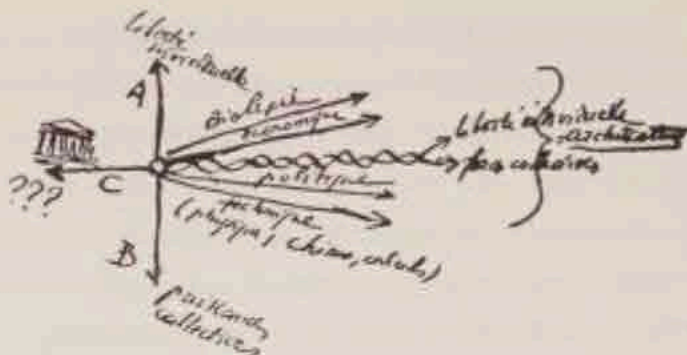 liberté
individuelle
A
biologie
économique
liberté individuelle
architecture
forces collectives
politique
???
C
technique
(physique, chimie, calculs)
B
puissances
collectives